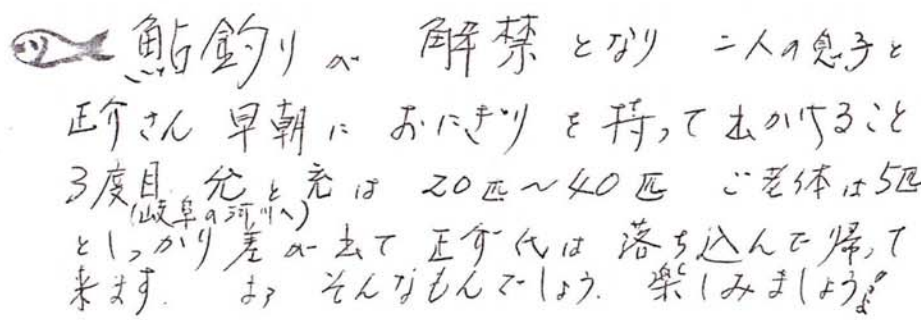 鮎釣りが 解禁となり 二人の息子と
正介さん 早朝に おにぎりを持って出かけること
3度目. 允と充は 20匹〜40匹 ご老体は5匹
(岐阜の河川へ)
としっかり差が出て 正介代は 落ち込んで帰って
来ます. まァ そんなもんでしょう. 楽しみましょうよ